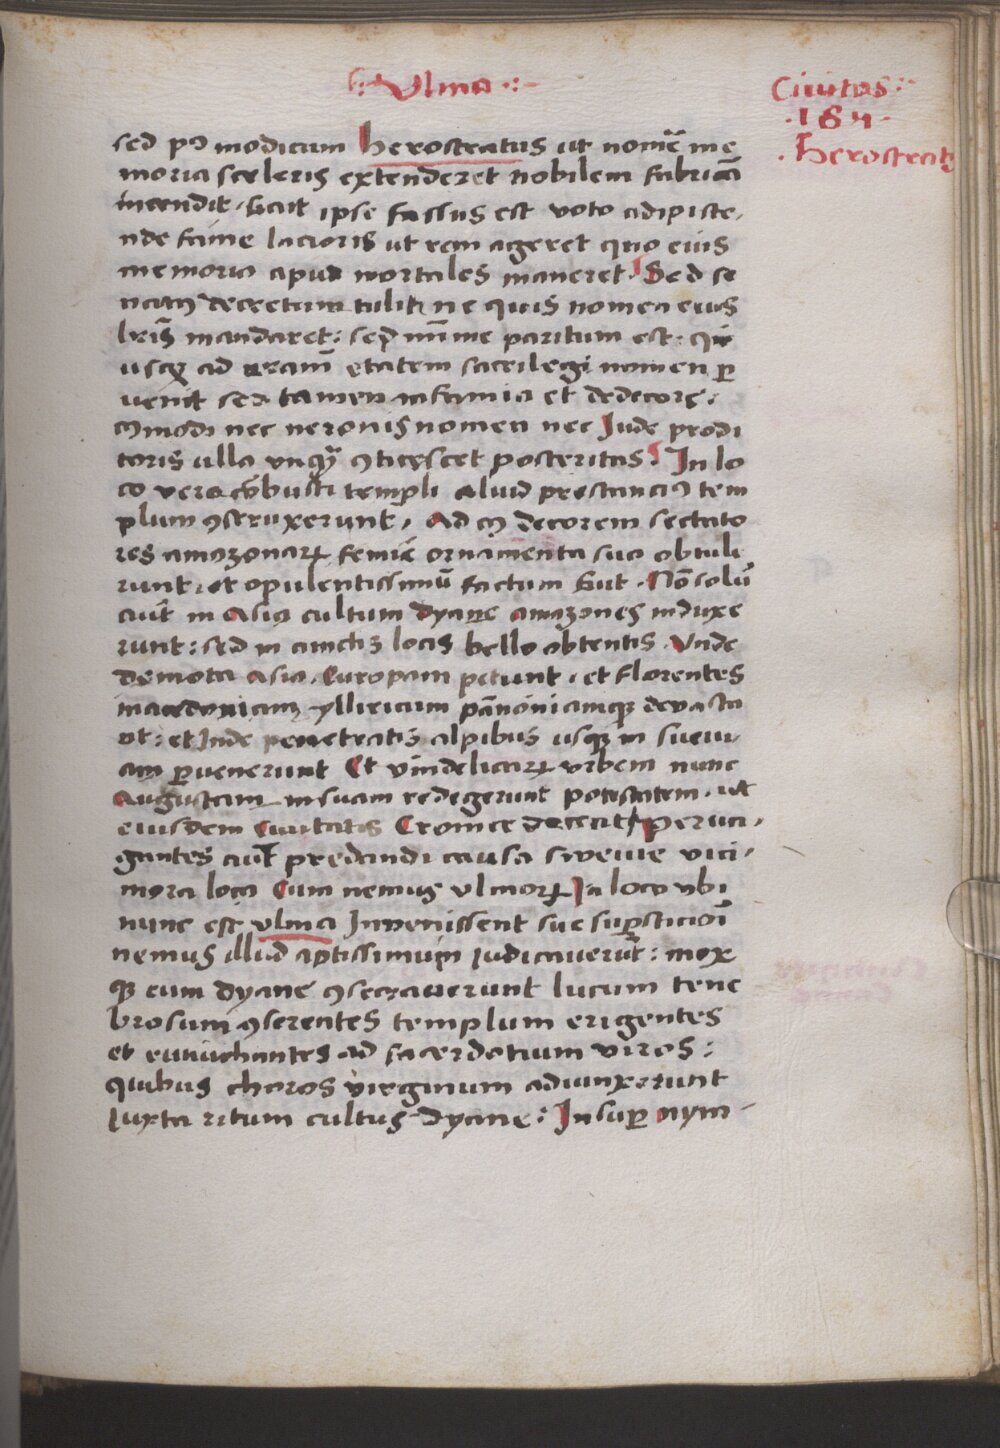 ·:Vlma·:·
Ciuitas:·
·184·
·Herostratꝰ
sed pꝰ modicum herostratus ut nomē me
moria sceleris extenderet nobilem fabricā
incendit. Sicut ipse fassus est voto adipisce,
nde fame lacioris ut rem ageret quo eius
memoria apud mortales maneret. Sed se
natꝰ decretum tulit ne quis nomen eius
lrīs mandaret: sed mīme paritum est. qꝛ
usqꝫ ad nrām etatem sacrilegi nomen ꝑ
uenit sed tamen infamia et dedecore:
qmodo nec neronis nomen nec Jude prodi
toris ulla vnqꝫ ꝯticescet posteritas. In lo
co vero cōbusti templi aliud prestanciꝰ tem
plum ꝯstruxerunt. Ad cꝰ decorem sectato
res amazonaꝝ femīe ornamenta sua obtuli
runt. et opulentissimū factum fuit. Nō solū
aut̄ in Asia cultum dyane amazones induxe
runt: sed in cunctis locis bello obtentis. Vnde
demota asia. Europam petiunt. et florentes
macedoniam yllliricum pānoniamqꝫ deuasta
bt: et Inde penetratis alpibus usqꝫ in sueui,
am ꝑuenerunt Et vindelicaꝝ vrbem nunc
Augustam in suam redegerunt potestatem. ut
eiusdem Ciuitatis Cronice docent Peruā,
gantes aut̄ predandi causa sweuie vici,
niora loca Cum nemus vlmoꝝ In loco vbi
nunc est vlma Inuenissent sue suꝑsticioī
nemus illud aptissimum iudicauerūt: mox
qꝫ eum dyane ꝯsecrauerunt lucum tene
brosum ꝯserentes templum erigentes
et eunuchantes ad sacerdotium viros:
quibus choros virginum adiunxerunt
Iuxta ritum cultus dyane: Insuꝑ nym-